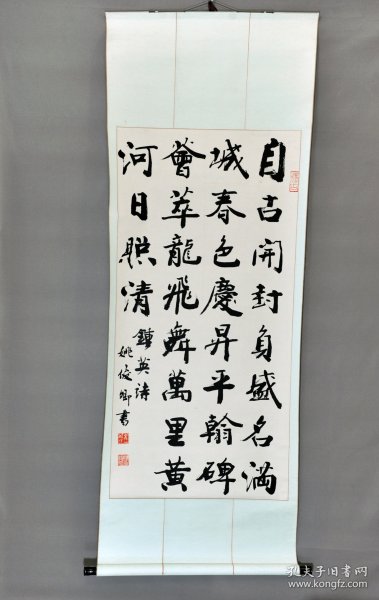 自古開封負盛名滿
城春色慶昇平翰碑
薈萃龍飛舞萬里黃
河日照清
鍾英詩
姚俊卿書
孔夫子旧书网
www.kongfz.com